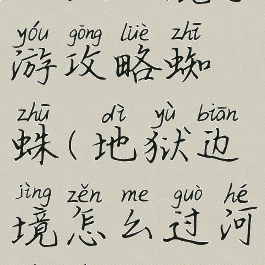 yóu gōng lüè zhī
游攻略蜘
zhū dì yù biān
蛛(地狱边
jìng zěn me guò hé
境怎么过河